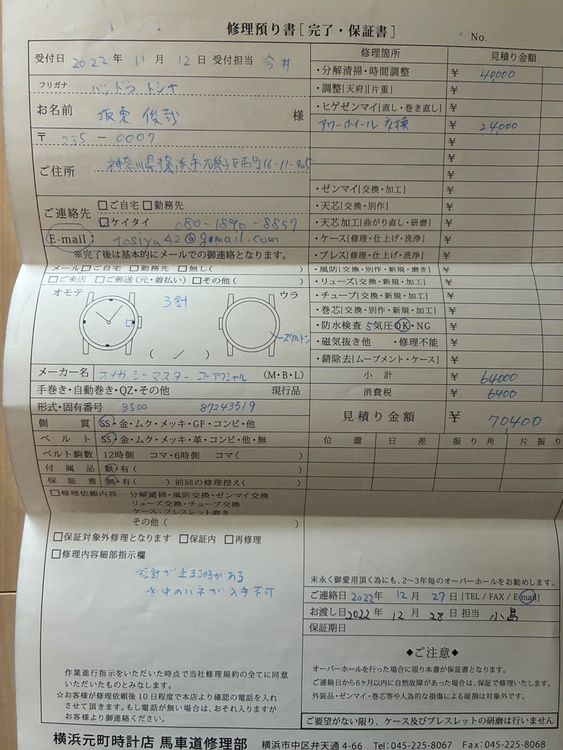 修理預り書[完了・保証書]
No.
受付日 2022年 11月 12日 受付担当 今井
フリガナ バンドウ トシヤ
お名前 坂東 俊哉 様
〒 235-0007
ご住所 神奈川県横浜市磯子区西町16-11-905
ご連絡先 □ご自宅 □勤務先
□ケイタイ 080-1890-8857
E-mail: tosiya42@gmail.com
※完了後は基本的にメールでの御連絡となります。
メール □ご自宅 □勤務先 □無し( )
□ご来店 □ご郵送(元・着払い) □その他( )
オモテ 3針 ウラ
( ✓ )
メーカー名 オメガ シーマスター コーアクシャル (M・B・L)
手巻き・自動巻き・QZ・その他 現行品
形式・固有番号 8500 87243519
側質 SS・金・ムク・メッキ・GF・コンビ・他
ベルト SS・金・ムク・メッキ・革・コンビ・他・無
ベルト駒数 12時側 コマ・6時側 コマ
付属品 無・有( )
保証書 無・有( ) 前回の修理控え( )
□修理依頼内容…分解清掃・風防交換・ゼンマイ交換
リューズ交換・チューブ交換
ケース:ブレスレット磨き
その他( )
□保証対象外修理となります □保証内 □再修理
□修理内容細部指示欄
が止まる時がある
作業進行指示をいただいた時点で当社修理規約の全てに同意
いただいたものとみなします。
☆お客様が修理依頼後10日程度で本店より確認の電話を入れ
させて頂きます。もし電話が無い場合は、おそれ入りますが
お客様より御連絡ください。
修理箇所 見積り金額
・分解清掃・時間調整 ¥ 40000
・調整[天府][片重] ¥
・ヒゲゼンマイ[直し・巻き直し] ¥
アワーホイール 交換 ¥ 24,000
¥
¥
¥
・ゼンマイ[交換・加工] ¥
・天芯[交換・別作] ¥
・天芯加工[曲がり直し・研磨] ¥
・ケース[修理・仕上げ・洗浄] ¥
・ブレス[修理・仕上げ・洗浄] ¥
・風防[交換・別作・新規・磨き] ¥
・リューズ[交換・別作・新規] ¥
・チューブ[交換・加工・新規] ¥
・巻芯[交換・別作・新規・加工] ¥
・防水検査 5気圧 OK・NG ¥
・磁気抜き他 ・修理不能 ¥
・錆除去[ムーブメント・ケース] ¥
小計 ¥ 64000
消費税 ¥ 6400
見積り金額 ¥ 70400
位置 日差 振り角 片振り
末永く御愛用頂く為にも、2~3年毎のオーバーホールをお勧めします。
ご連絡日 2022年 12月 27日 [TEL / FAX / E-mail]
お渡し日 2022年 12月 28日 担当 小島
保証期日
◆ご注意◆
オーバーホールを行った場合に限り本書が保証書となります。
ご連絡日から6ヶ月以内に自然故障があった場合は、保証で修理いたします。
外装品・ゼンマイ・巻芯等や人為的な損傷による破損は対象外です。
ご要望がない限り、ケース及びブレスレットの研磨は行いません
横浜元町時計店 馬車道修理部 横浜市中区弁天通4-66 Tel:045-225-8067 Fax:045-225-8068